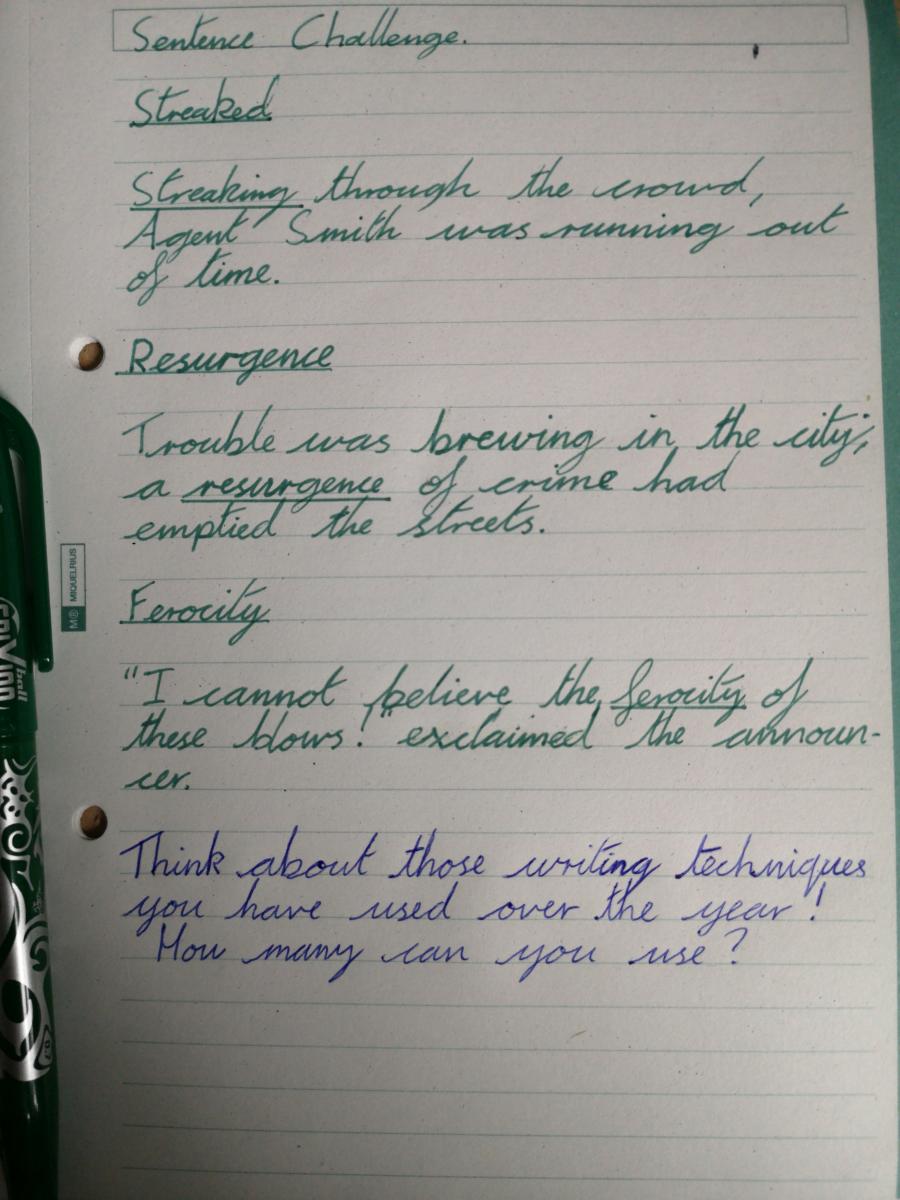 Sentence Challenge.
Streaked
Streaking through the crowd,
Agent Smith was running out
of time.
Resurgence
Trouble was brewing in the city;
a resurgence of crime had
emptied the streets.
MIQUELRIUS
Ferocity
"I cannot believe the ferocity of
these blows!" exclaimed the announ-
cer.
Think about those writing techniques
you have used over the year!
How many can you use?